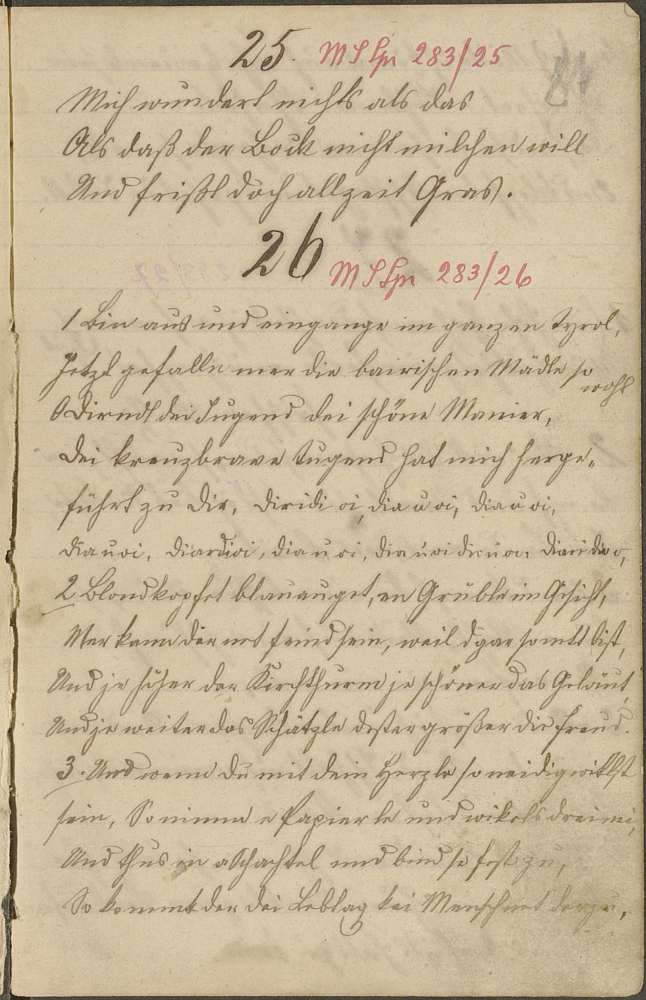 25. MS Lpr 283/25
Mich wundert nichts als das
Als daß der Bock nicht milchen will
Und frißt doch allzeit Gras.
26 MS Lpr 283/26
1 Bin aus und eingange im ganzen Tyrol,
Jetzt gefalln mer die bairischen Mädle so
wohl
O Dirndl dei Jugend dei schöne Manier,
Dei kreuzbrave Tugend hat mich herge-
führt zu Dir, diridi oi, dia u oi, dia u oi,
dia u oi, diardioi, dia u oi,
2 Blondkopfet blauauget, an Grüble im Gsicht,
Mer kann dir net feind sein, weil d gar so nett bist,
Und je höher der Kirchthurm je schöner das Geläut,
Und je weiter das Schätzle desto größer die Freud.
3. Und wenn Du mit dein Herzle so neidig willst
sein, So nimm e Papierle und wikels drei nei,
Und thus in a Schachtel und bind se fest zu,
So kommt der dei Lebtag kei Mensch net derzu,